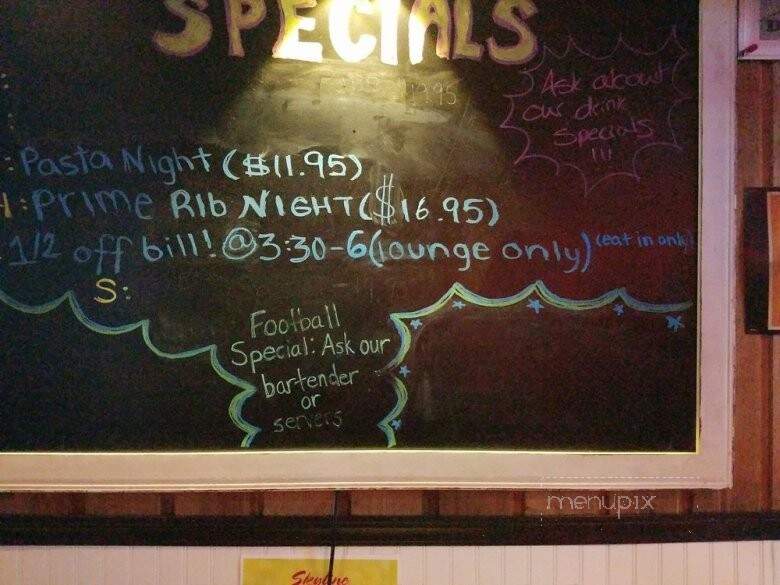 SPECIALS
19.95
Ask about
our drink
Specials
!!!
: Pasta Night ($11.95)
: PRIME RIB NIGHT ($16.95)
1/2 off bill! @ 3:30-6 (lounge only) (eat in only)
S:
Football
Special: Ask our
bartender
or
servers
menupix
Skyline